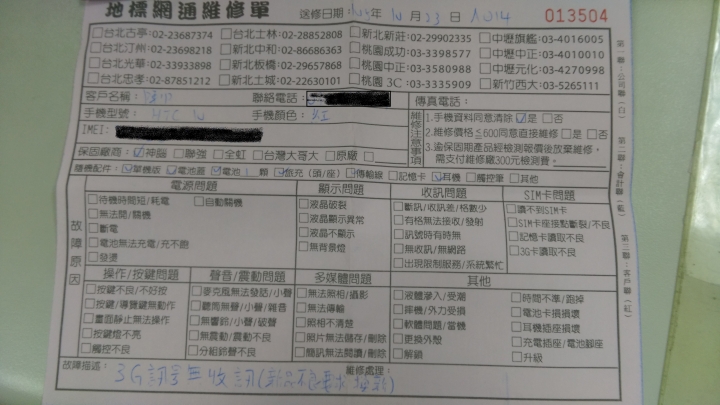 地標網通維修單 送修日期 年 10 月 23 日 013504
□台北古亭:02-23687374 □台北士林:02-28852808 □新北新莊:02-29902335 □中壢旗艦:03-4016005
□台北汀州:02-23698218 □新北中和:02-86686363 □桃園成功:03-3398577 □中壢中正:03-4010010
□台北光華:02-33933898 □新北板橋:02-29657868 □桃園中正:03-3580988 □中壢元化:03-4270998
□台北忠孝:02-87851212 □新北土城:02-22630101 □桃園 3C:03-3335909 □新竹西大:03-5265111
客戶名稱: 聯絡電話: 傳真電話:
手機型號: HTC 手機顏色:紅
IMEI:
維修注意事項
1.手機資料同意清除☑是□否
2.維修價格≦600同意直接維修□是□否
3.逾保固期產品經檢測報價後放棄維修,
需支付維修廠300元檢測費。
保固廠商:☑神腦 □聯強 □全虹 □台灣大哥大 □原廠 □
隨機配件:☑單機版 ☑電池蓋 ☑電池 1 顆 ☑旅充(頭/座) ☑傳輸線 □記憶卡 ☑耳機 □觸控筆 □其他
故障原因
電源問題 顯示問題 收訊問題 SIM卡問題
□待機時間短/耗電 □自動關機 □液晶破裂 □斷訊/收訊差/格數少 □讀不到SIM卡
□無法開/關機 □液晶顯示異常 □有格無法接收/發射 □SIM卡座接點斷裂/不良
□斷電 □液晶不顯示 □訊號時有時無 □記憶卡讀取不良
□電池無法充電/充不飽 □無背景燈 □無收訊/無網路 □3G卡讀取不良
□發燙 □出現限制服務/系統繁忙
操作/按鍵問題 聲音/震動問題 多媒體問題 其他
□按鍵不良/不好按 □麥克風無法發話/小聲 □無法照相/攝影 □液體滲入/受潮 □時間不準/跑掉
□按鍵/導覽鍵無動作 □聽筒無聲/小聲/雜音 □無法傳輸 □摔機/外力受損 □電池卡損損壞
□畫面靜止無法操作 □無響鈴/小聲/破聲 □照相不清楚 □軟體問題/當機 □耳機插座損壞
□按鍵燈不亮 □無震動/震動不良 □照片無法儲存/刪除 □更換外殼 □充電插座/電池腳座
□觸控不良 □分組鈴聲不良 □簡訊無法閱讀/刪除 □解鎖 □升級
故障描述: 3G訊號無收訊(新品不良要求換新) 維修處理:
第一聯:公司聯(白)
第二聯:會計聯(綠)
第三聯:客戶聯(紅)